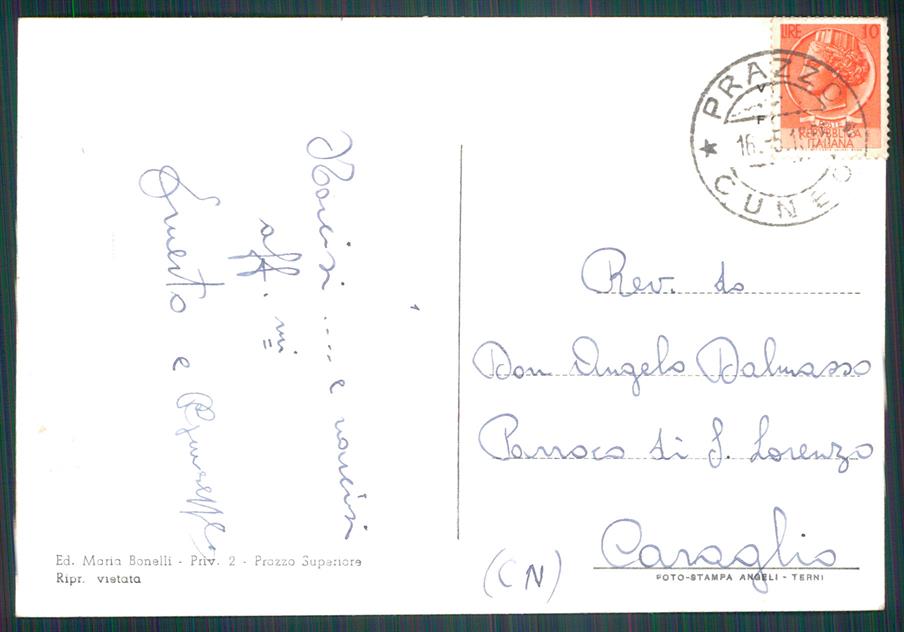 LIRE 10
POSTE
REPUBBLICA
ITALIANA
PRAZZO
★ CUNEO
16.-5.1
Narcisi .... e narcisi
aff.mi
Ernesto e Giuseppe
Rev. do
Don Angelo Dalmasso
Parroco di S. Lorenzo
Caraglio
(CN)
Ed. Maria Bonelli - Priv. 2 - Prazzo Superiore
Ripr. vietata
FOTO-STAMPA ANGELI - TERNI